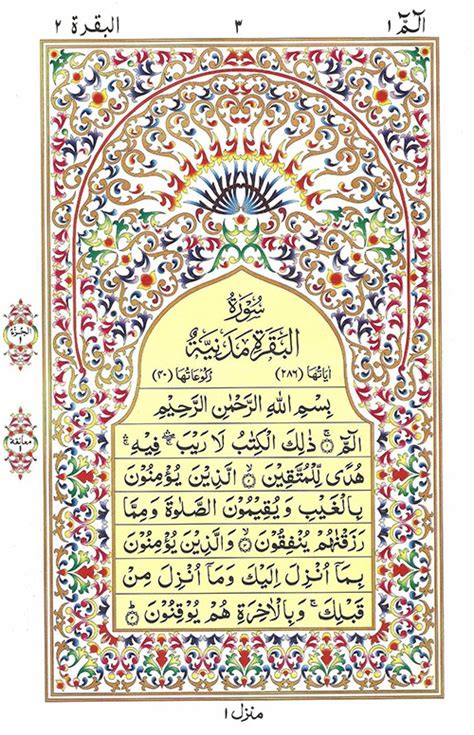 الٓمّٓ ١ ٣ البقرة ٢
سُوۡرَةُ
الۡبَقَرَةِ مَدَنِيَّةٌ
اٰيَاتُهَا (٢٨٦) رُكُوۡعَاتُهَا (٤٠)
بِسۡمِ اللّٰهِ الرَّحۡمٰنِ الرَّحِيۡمِ
الٓمّٓ ۚ‏ ۝١ ذٰلِكَ الۡكِتٰبُ لَا رَيۡبَ ۛۚ فِيۡهِ ۛۚ
هُدًى لِّلۡمُتَّقِيۡنَۙ‏ ۝٢ الَّذِيۡنَ يُؤۡمِنُوۡنَ
بِالۡغَيۡبِ وَ يُقِيۡمُوۡنَ الصَّلٰوةَ وَمِمَّا
رَزَقۡنٰهُمۡ يُنۡفِقُوۡنَۙ‏ ۝٣ وَالَّذِيۡنَ يُؤۡمِنُوۡنَ
بِمَاۤ اُنۡزِلَ اِلَيۡكَ وَمَاۤ اُنۡزِلَ مِنۡ
قَبۡلِكَ ۚ وَبِالۡاٰخِرَةِ هُمۡ يُوۡقِنُوۡنَؕ‏ ۝٤
الجزء
١
معانقة
١
منزل ١